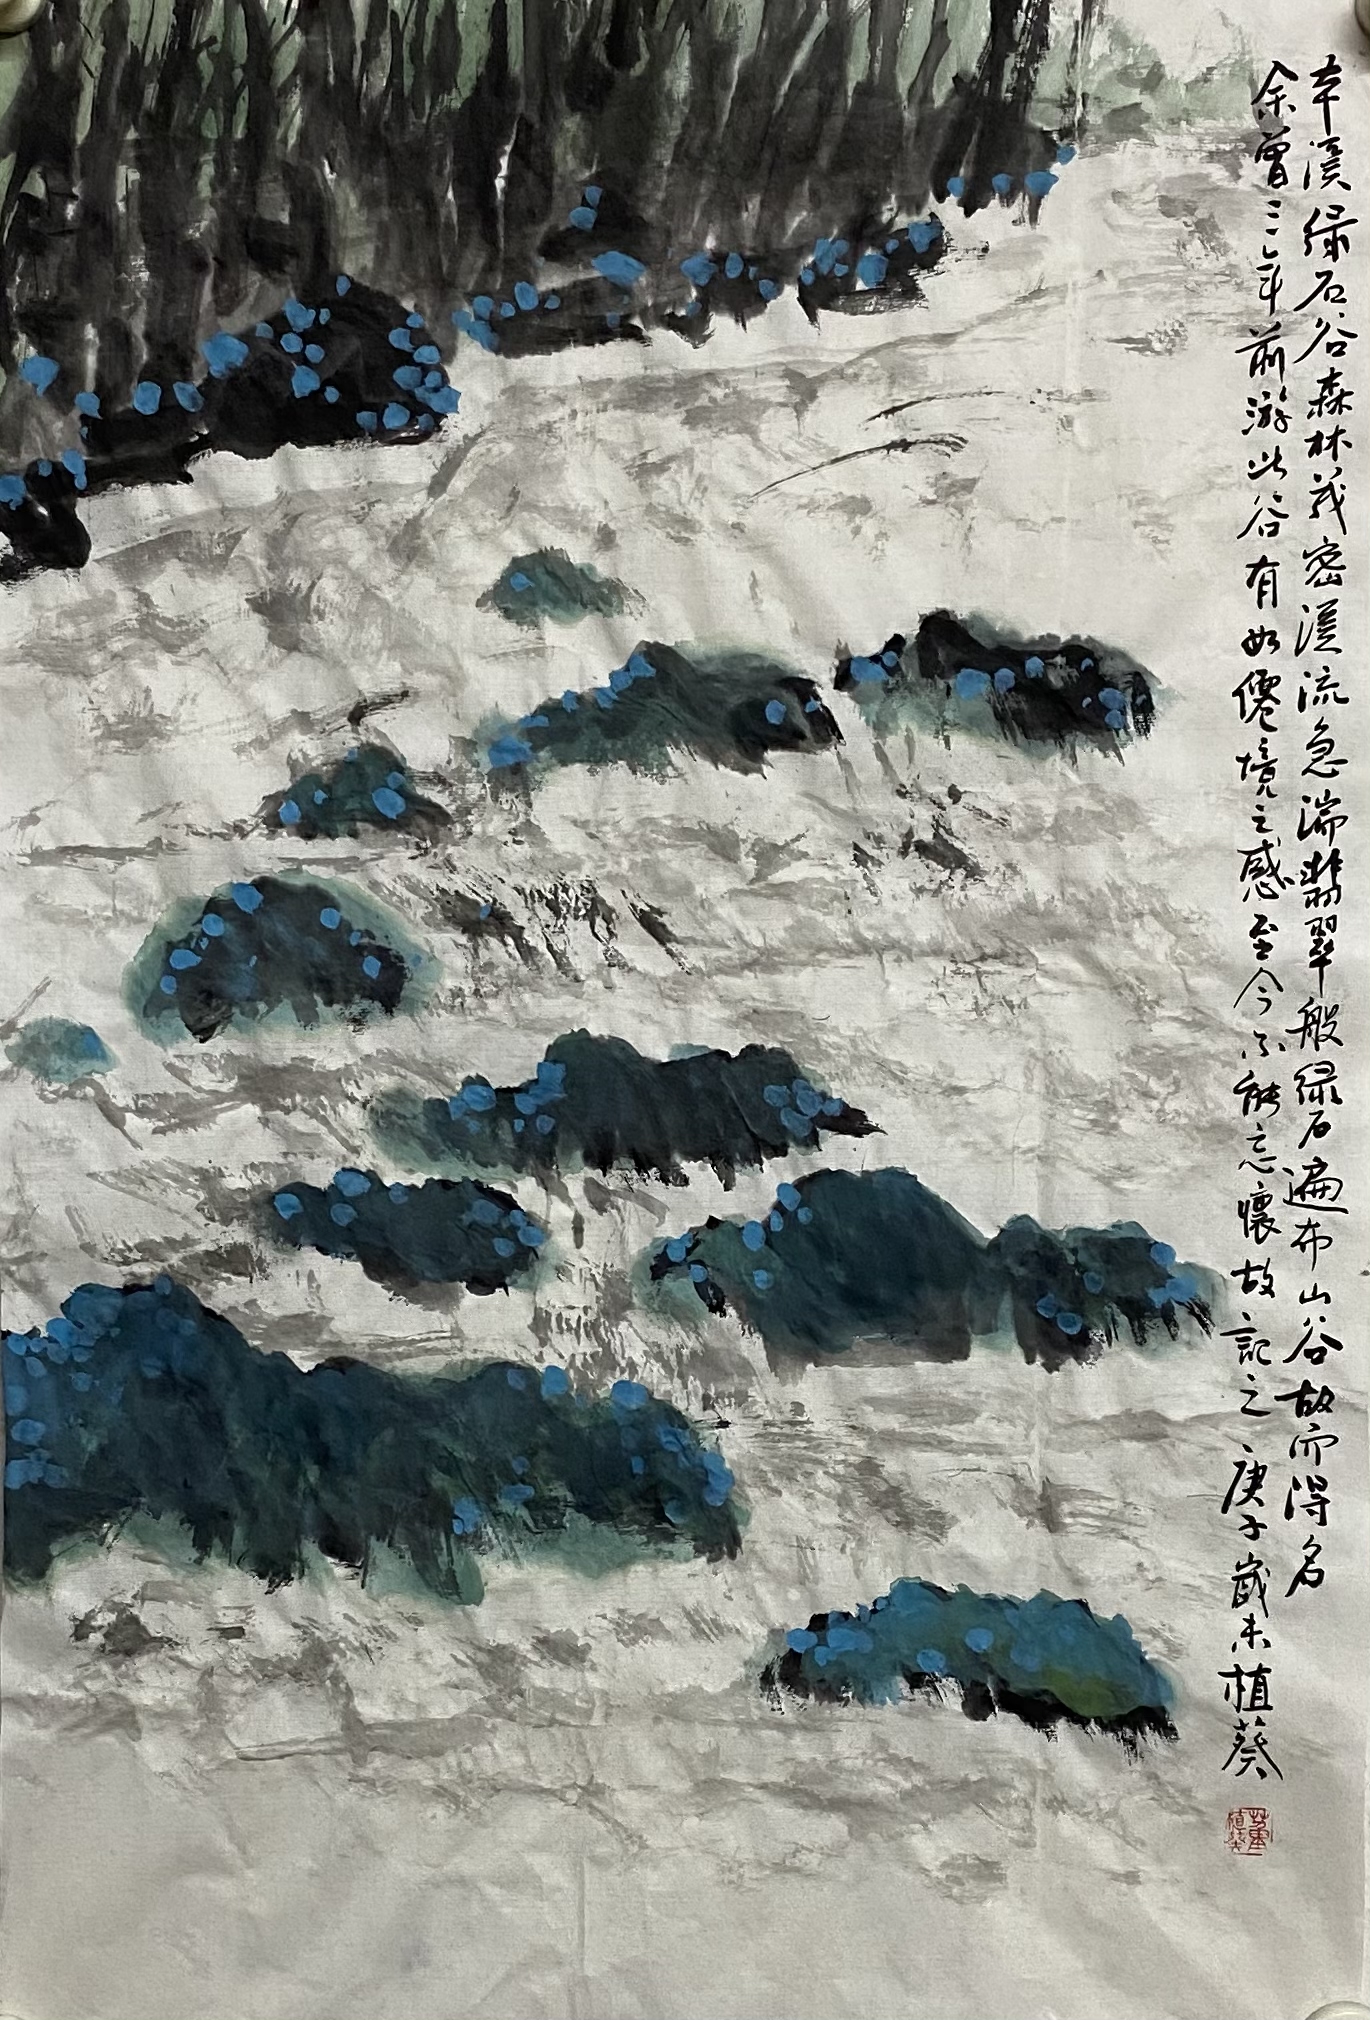 本溪绿石谷森林茂密溪流急湍翡翠般绿石遍布山谷故而得名
余曾三年前游此谷有如僊境之感至今不能忘懷故記之庚子歲末植葵
董植葵